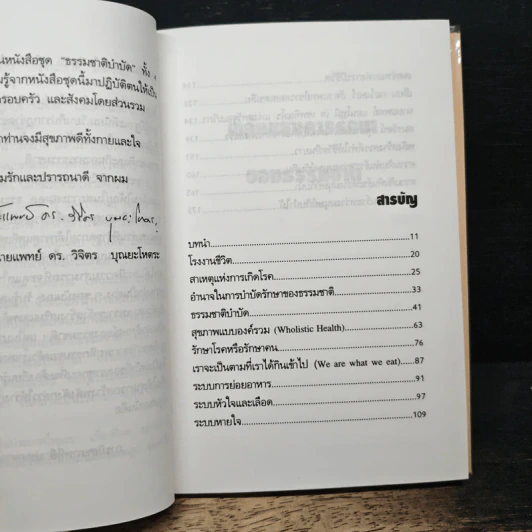 นหนังสือชุด "ธรรมชาติบำบัด" ทั้ง
มรู้จากหนังสือชุดนี้มาปฏิบัติตนให้เป็น
รอบครัว และสังคมโดยส่วนรวม
าท่านจงมีสุขภาพดีทั้งกายและใจ
มรักและปรารถนาดี จากผม
ายแพทย์ ดร. วิจิตร บุณยะโหตระ
สารบัญ
บทนำ...11
โรงงานชีวิต...20
สาเหตุแห่งการเกิดโรค...25
อำนาจในการบำบัดรักษาของธรรมชาติ...33
ธรรมชาติบำบัด...41
สุขภาพแบบองค์รวม (Wholistic Health)...63
รักษาโรคหรือรักษาคน...76
เราจะเป็นตามที่เราได้กินเข้าไป (We are what we eat)...87
ระบบการย่อยอาหาร...91
ระบบหัวใจและเลือด...97
ระบบหายใจ...109